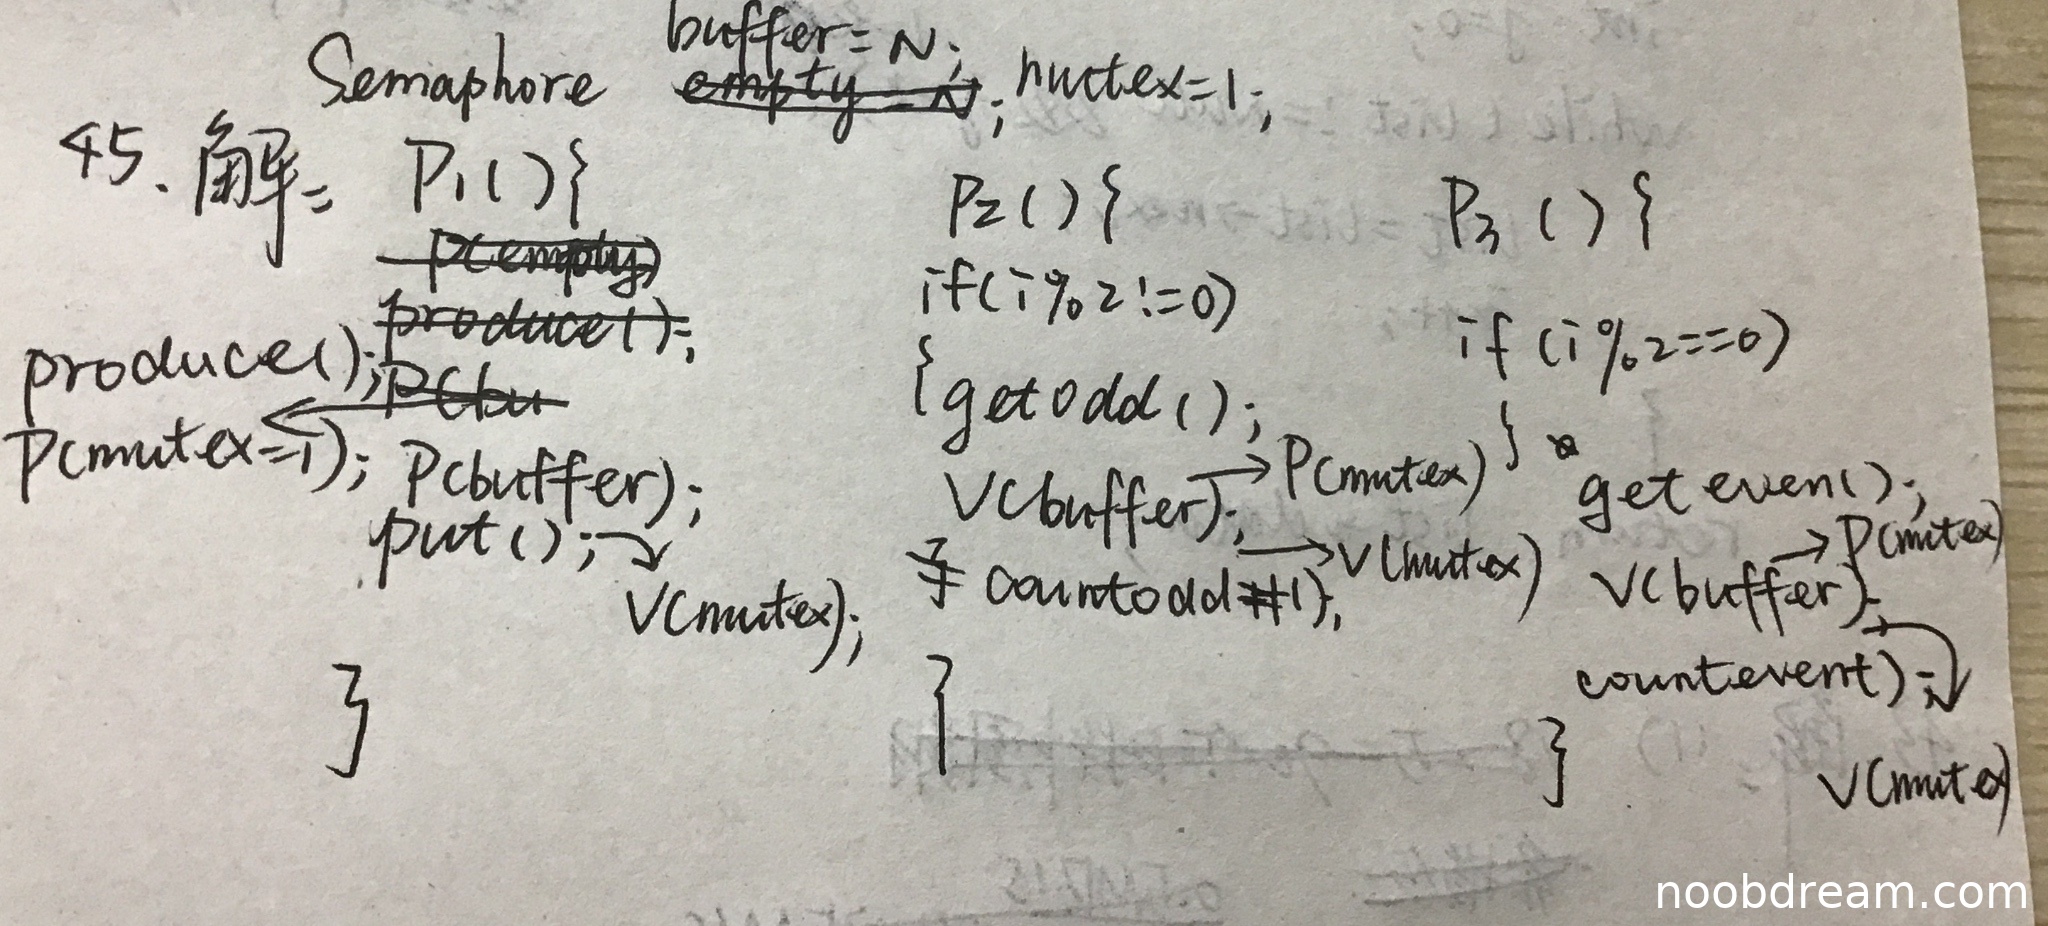 Semaphore buffer=N; mutex=1;
empty=N;
45. 解= P1(){
P(empty)
produce();
produce(); P(bu
P(mutex=1); P(buffer);
put();
V(mutex);
}
P2(){
if(i%2!=0)
{getodd();
V(buffer); → P(mutex)
countodd(); → V(mutex)
}
P3(){
if(i%2==0)
}
geteven();
V(buffer); → P(mutex)
counteven();
V(mutex)
}
noobdream.com